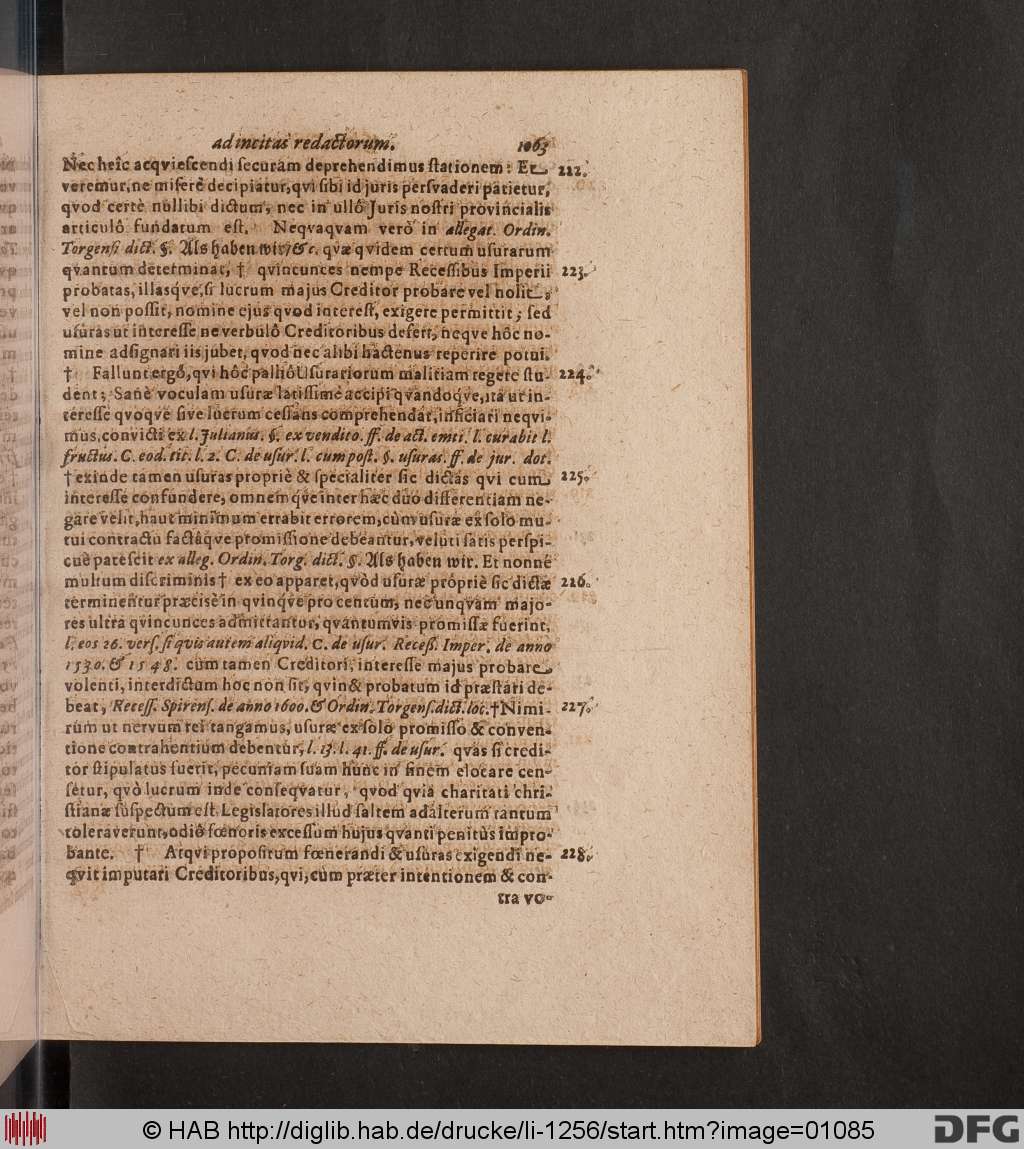 ad incitas redactorum. 1063
Nec heîc acqviescendi securam deprehendimus stationem: Et 222.
veremur, ne miserè decipiatur, qvi sibi id juris persvaderi patietur,
qvod certè nullibi dictum, nec in ullô Juris nostri provincialis
articulô fundatum est. Neqvaqvam verò in allegat. Ordin.
Torgensi dict. §. Als haben wir / &c. qvæ qvidem certum usurarum
qvantum determinat, † qvincunces nempe Recessibus Imperii 223.
probatas, illasqve, si lucrum majus Creditor probare vel nolit,
vel non possit, nomine ejus qvod interest, exigere permittit; sed
usuras ut interesse ne verbulô Creditoribus defert, neqve hôc no-
mine adsignari iis jubet, qvod nec alibi hactenus reperire potui.
† Fallunt ergò, qvi hôc palliô Usurariorum malitiam tegere stu- 224.
dent; Sanè voculam usuræ latissimè accipi qvandoqve, ita ut in-
teresse qvoqve sive lucrum cessans comprehendat, inficiari neqvi-
mus, convicti ex l. Julianus. §. ex vendito. ff. de act. emti. l. curabit l.
fructus. C. eod. tit. l. 2. C. de usur. l. cum post. §. usuras. ff. de jur. dot.
† exinde tamen usuras propriè & specialiter sic dictas qvi cum 225.
interesse confundere, omnemqve inter hæc duo differentiam ne-
gare velit, haut minimum errabit errorem, cùm usuræ ex solo mu-
tui contractu factâqve promissione debeantur, veluti satis perspi-
cuè patescit ex alleg. Ordin. Torg. dict. §. Als haben wir. Et nonne
multum discriminis † ex eo apparet, qvòd usuræ propriè sic dictæ 226.
terminentur præcisè in qvinqve pro centum, nec unqvam majo-
res ultra qvincunces admittantur, qvantumvis promissæ fuerint,
l. eos 26. vers. si quis autem aliqvid. C. de usur. Recess. Imper. de anno
1530. & 1548. cum tamen Creditori, interesse majus probare
volenti, interdictum hoc non sit, qvin & probatum id præstari de-
beat, Recess. Spirens. de anno 1600. & Ordin. Torgens. dict. loc. † Nimi- 227.
rùm ut nervum rei tangamus, usuræ ex solo promisso & conven-
tione contrahentium debentur, l. 13. l. 41. ff. de usur. qvas si credi-
tor stipulatus fuerit, pecuniam suam hunc in finem elocare cen-
setur, qvò lucrum inde conseqvatur, qvod qvia charitati chri-
stianæ suspectum est. Legislatores illud saltem ad alterum tantum
toleraverunt, odiô fœnoris excessum hujus qvanti penitùs impro-
bante. † Atqvi propositum fœnerandi & usuras exigendi ne- 228.
qvit imputari Creditoribus, qvi, cùm præter intentionem & con-
tra vo-
© HAB http://diglib.hab.de/drucke/li-1256/start.htm?image=01085
DFG